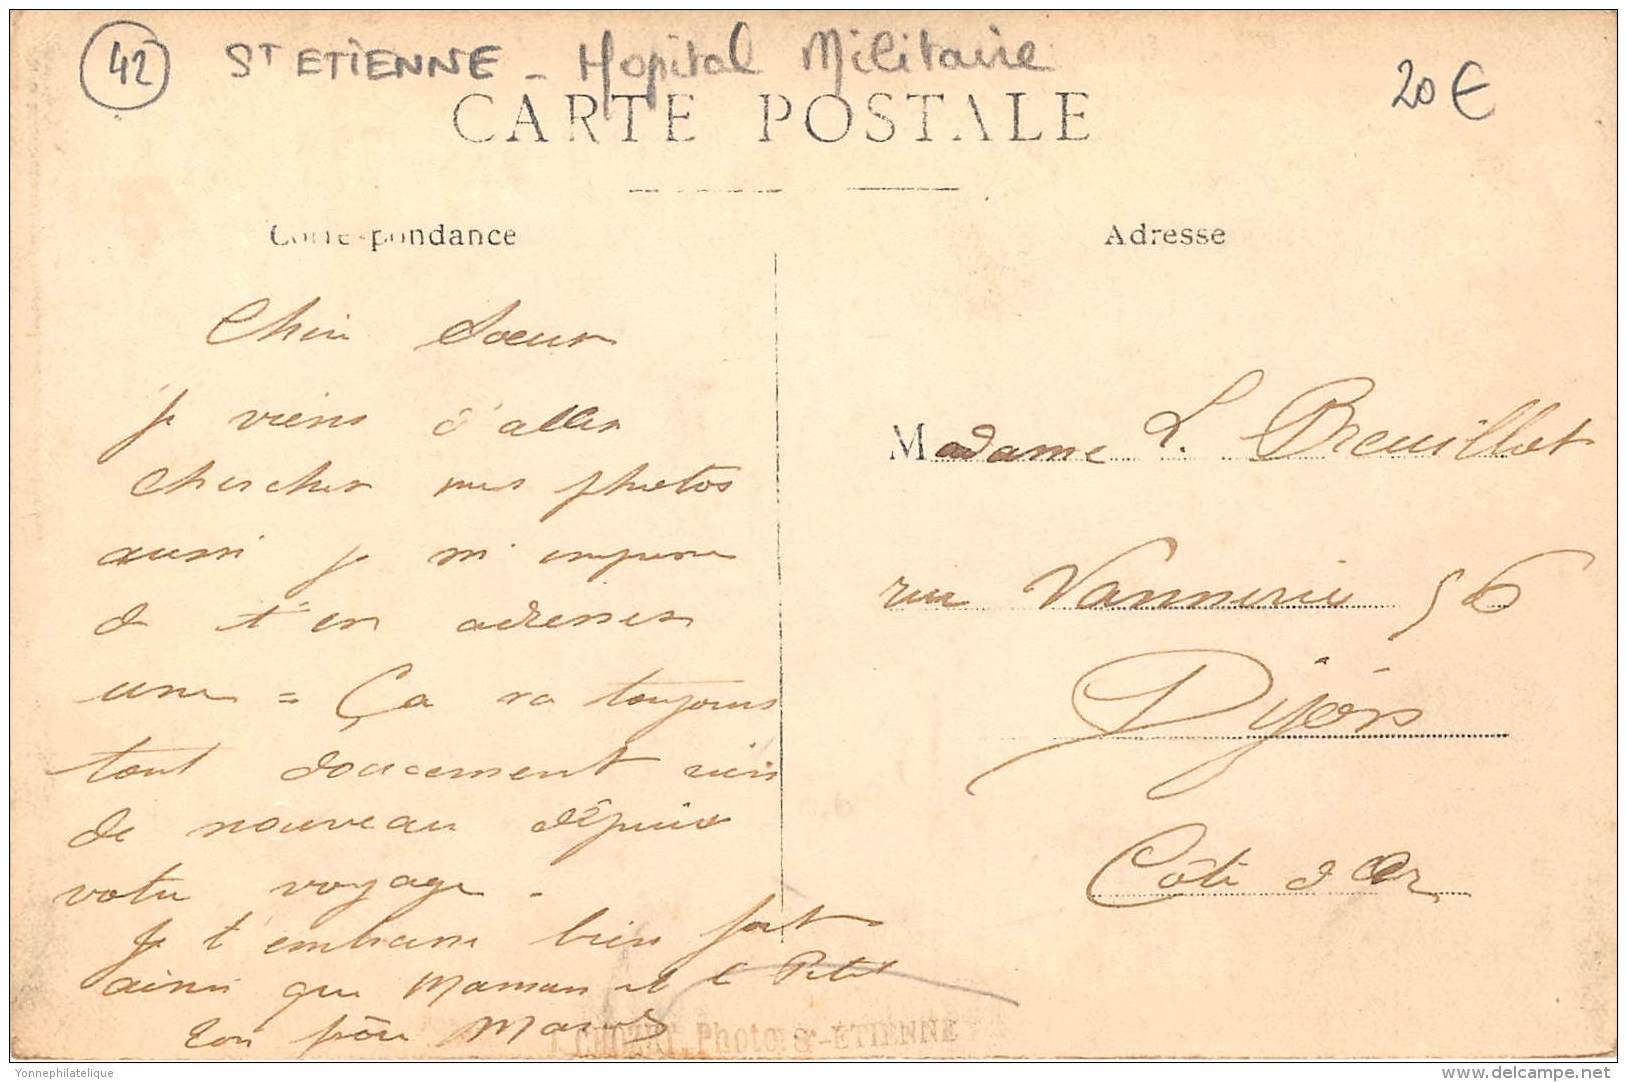 42
ST ETIENNE - Hopital Militaire
20€
CARTE POSTALE
Correspondance
Adresse
Chère Soeur
Je viens d'aller
chercher mes photos
aussi je m'empresse
de t'en adresser
une = Ça va toujours
tout doucement rien
de nouveau dépuis
votre voyage -
Je t'embrasse bien fort
ainsi que Maman et le Petit
Ton frère
Madame L. Breuillot
rue Vannerie 56
Dijon
Côte d'Or
Photo. St-ÉTIENNE
Yonnephilatelique
delcampe.net